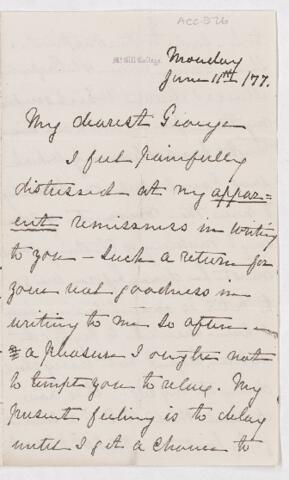 Acc 526
McGill College.
Monday
June 11th /77.
My dearest George
I feel painfully
distressed at my appar-
ent remissness in writing
to you - Such a return for
your real goodness in
writing to me so often -
a pleasure I ought not
to tempt you to relax. My
present feeling is to delay
until I get a chance to